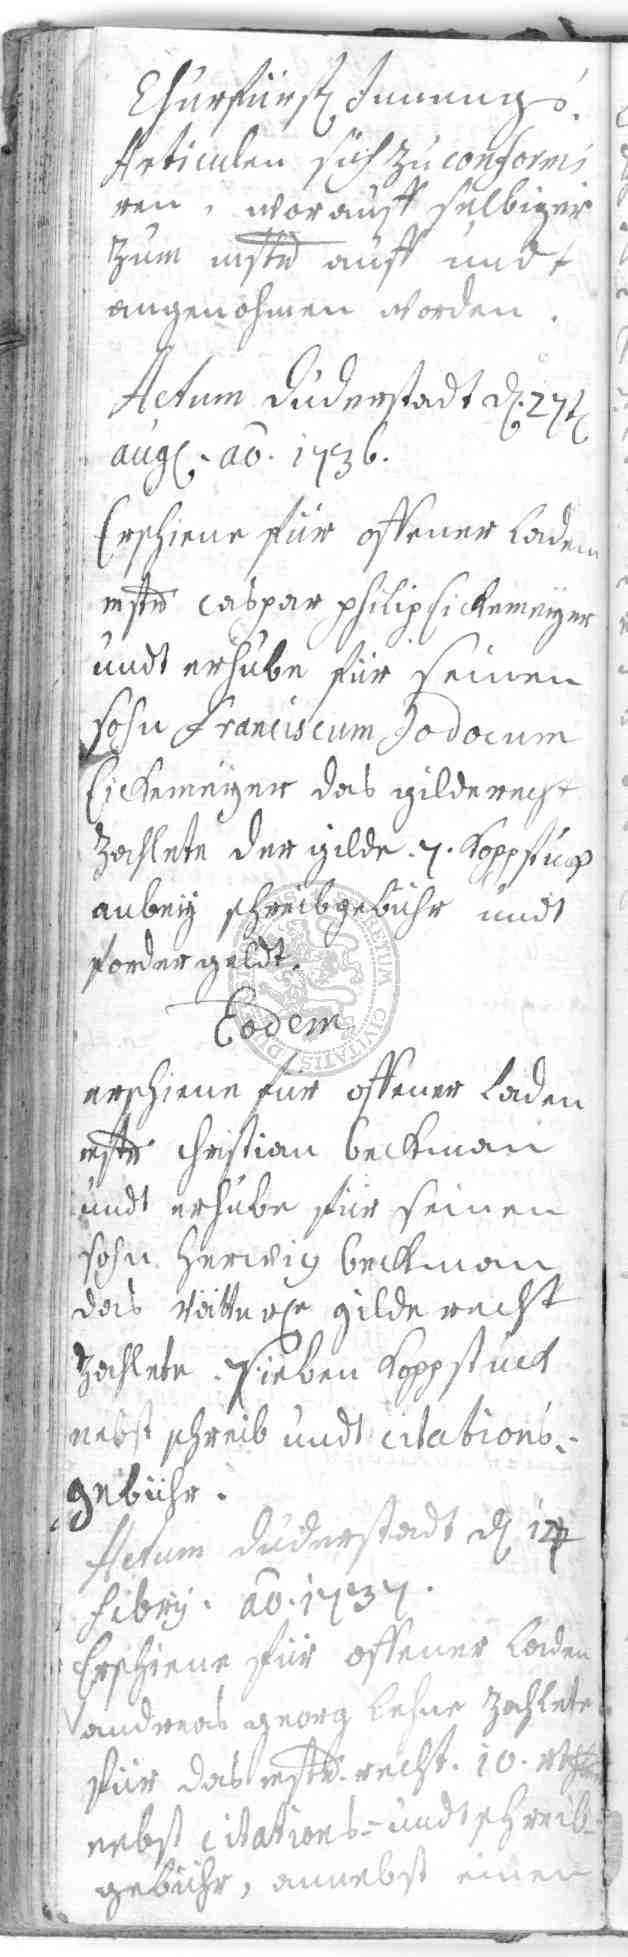 Churfürstl Innungs
Articulen sich zu conformi
ren, worauff selbiger
zum mstr auff undt
angenohmen worden.
Actum Duderstadt d. 27t
aug. ao. 1736.
Erschiene für offener Laden
mstr Caspar philip Eickemeyer
undt erhube für seinen
sohn Franciscum Jodocum
Eickemeyer das gilderecht
zahlete der gilde. 7. Koppstück
anbey schreibgebühr undt
fordergeldt.
Eodem
erschiene für offener Laden
mstr Christian beckman
undt erhube für seinen
sohn Herwig beckman
das gilderecht
zahlete. sieben Koppstück
nebst schreib undt citations-
gebühr.
Actum Duderstadt d 12t
Febry. ao. 1737.
Erschiene für offener Laden
andreas georg Lehne zahlete
für das mstr. recht. 10.
nebst citations- undt schreib-
gebühr, annebst einen